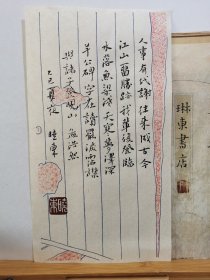 人事有代謝往來成古今
江山留勝跡我輩復登臨
水落魚梁淺天寒夢澤深
羊公碑字在讀罷淚霑襟
與諸子登峴山 孟浩然
乙巳夏 東
琳東書店